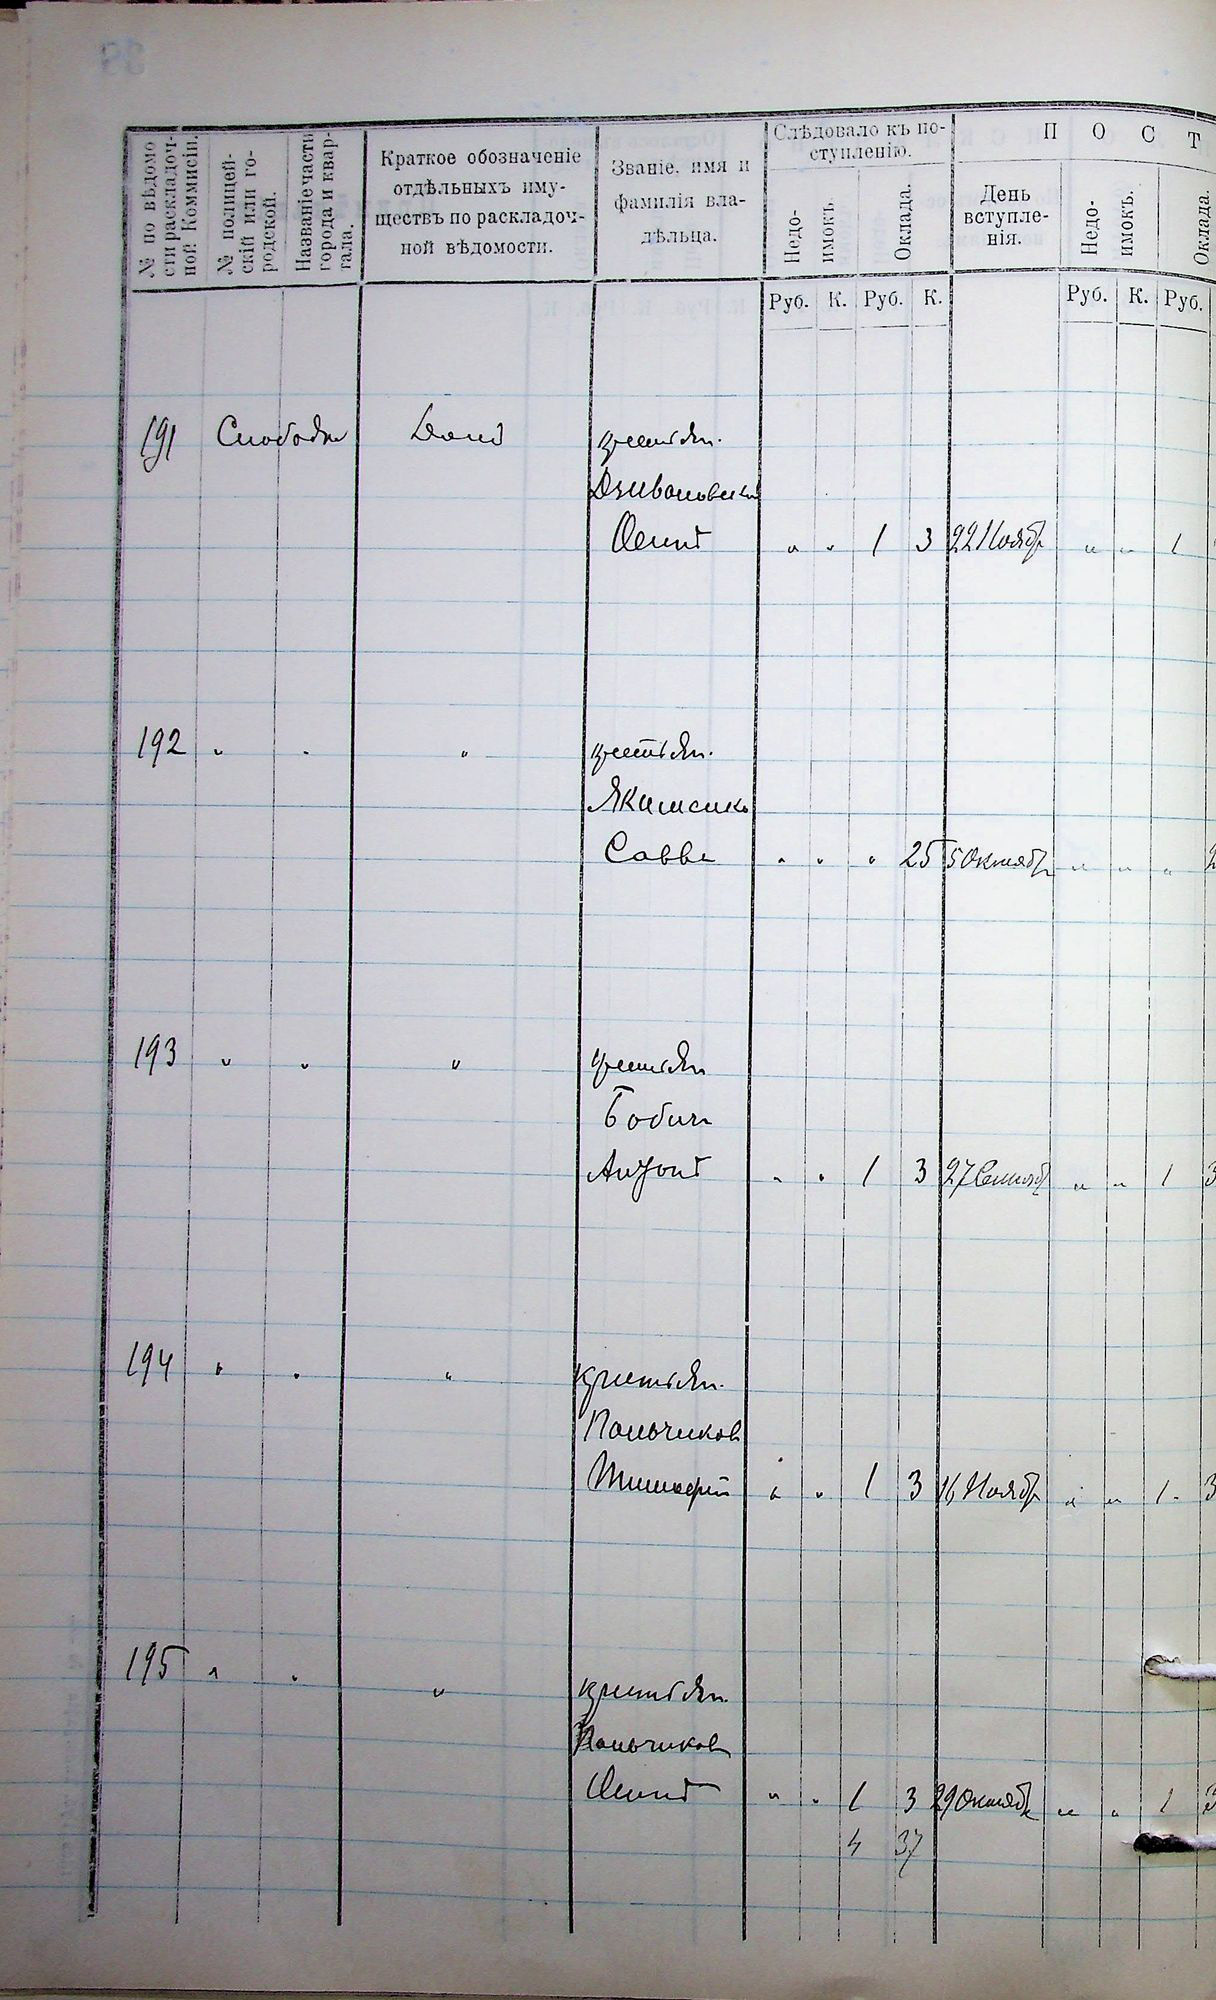 № по вѣдомо
сти раскладоч-
ной Коммисіи.
№ полицей-
скій или го-
родской.
Названіе части
города и квар-
тала.
Краткое обозначеніе
отдѣльныхъ иму-
ществъ по раскладоч-
ной вѣдомости.
Званіе, имя и
фамилія вла-
дѣльца.
Слѣдовало къ по-
ступленію.
Недо-
имокъ.
Оклада.
П О С Т
День
вступле-
нія.
Недо-
имокъ.
Оклада.
Руб. К. Руб. К. Руб. К. Руб.
191 Слободка Домъ крестьян.
Осипъ " " 1 3 22 Ноябр " " 1
192 " " " крестьян.
Якименко
Савва " " " 25 5 Октябр " " " 2
193 " " " крестьян
Бобич
Антонъ " " 1 3 27 Сентяб " " 1 3
194 " " " крестьян.
Пальчиков
Тимофей " " 1 3 16 Ноябр " " 1 3
195 " " " крестьян.
Пальчиков
Осипъ " " 1 3 29 Октябр " " 1 3
4 37